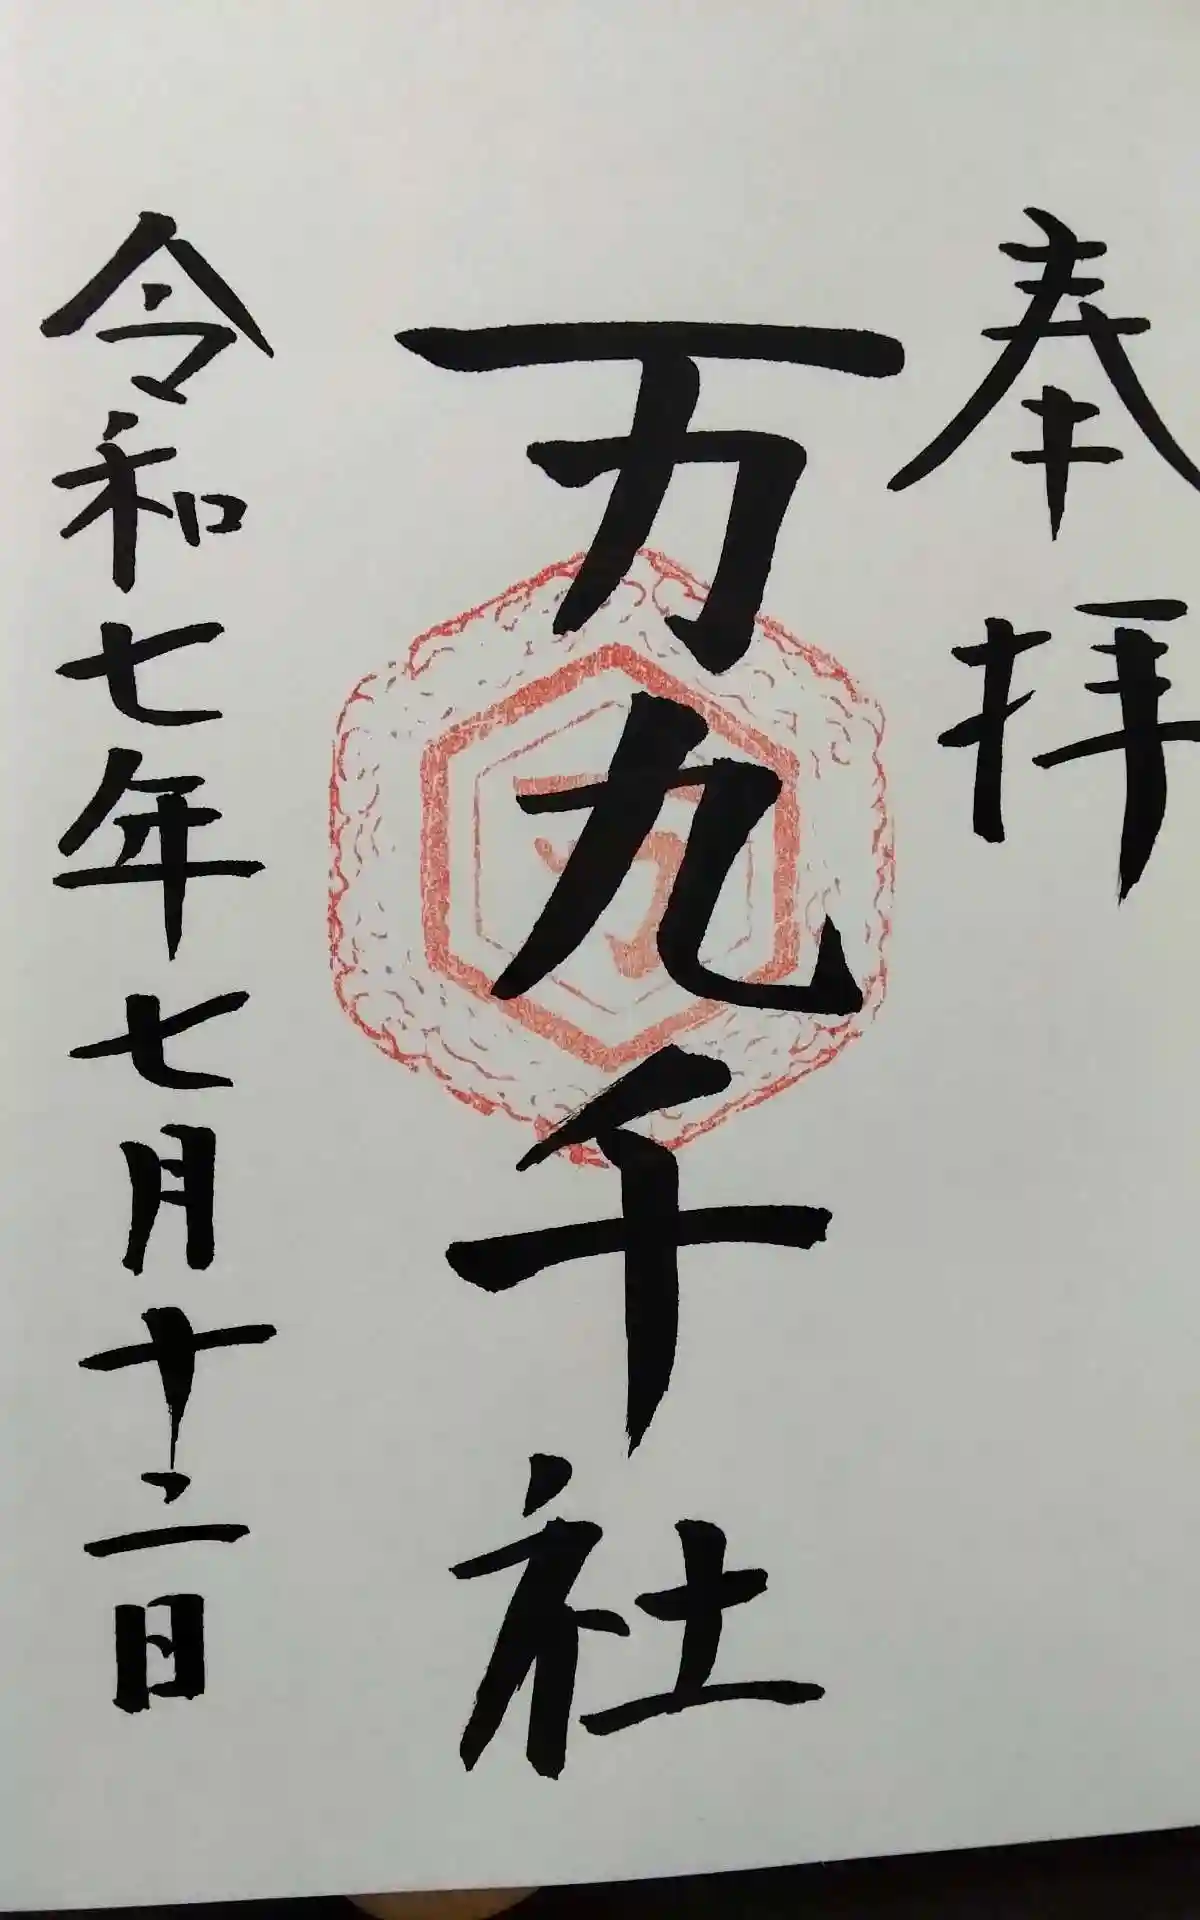 奉拝
万九千社
万
令和七年七月十二日